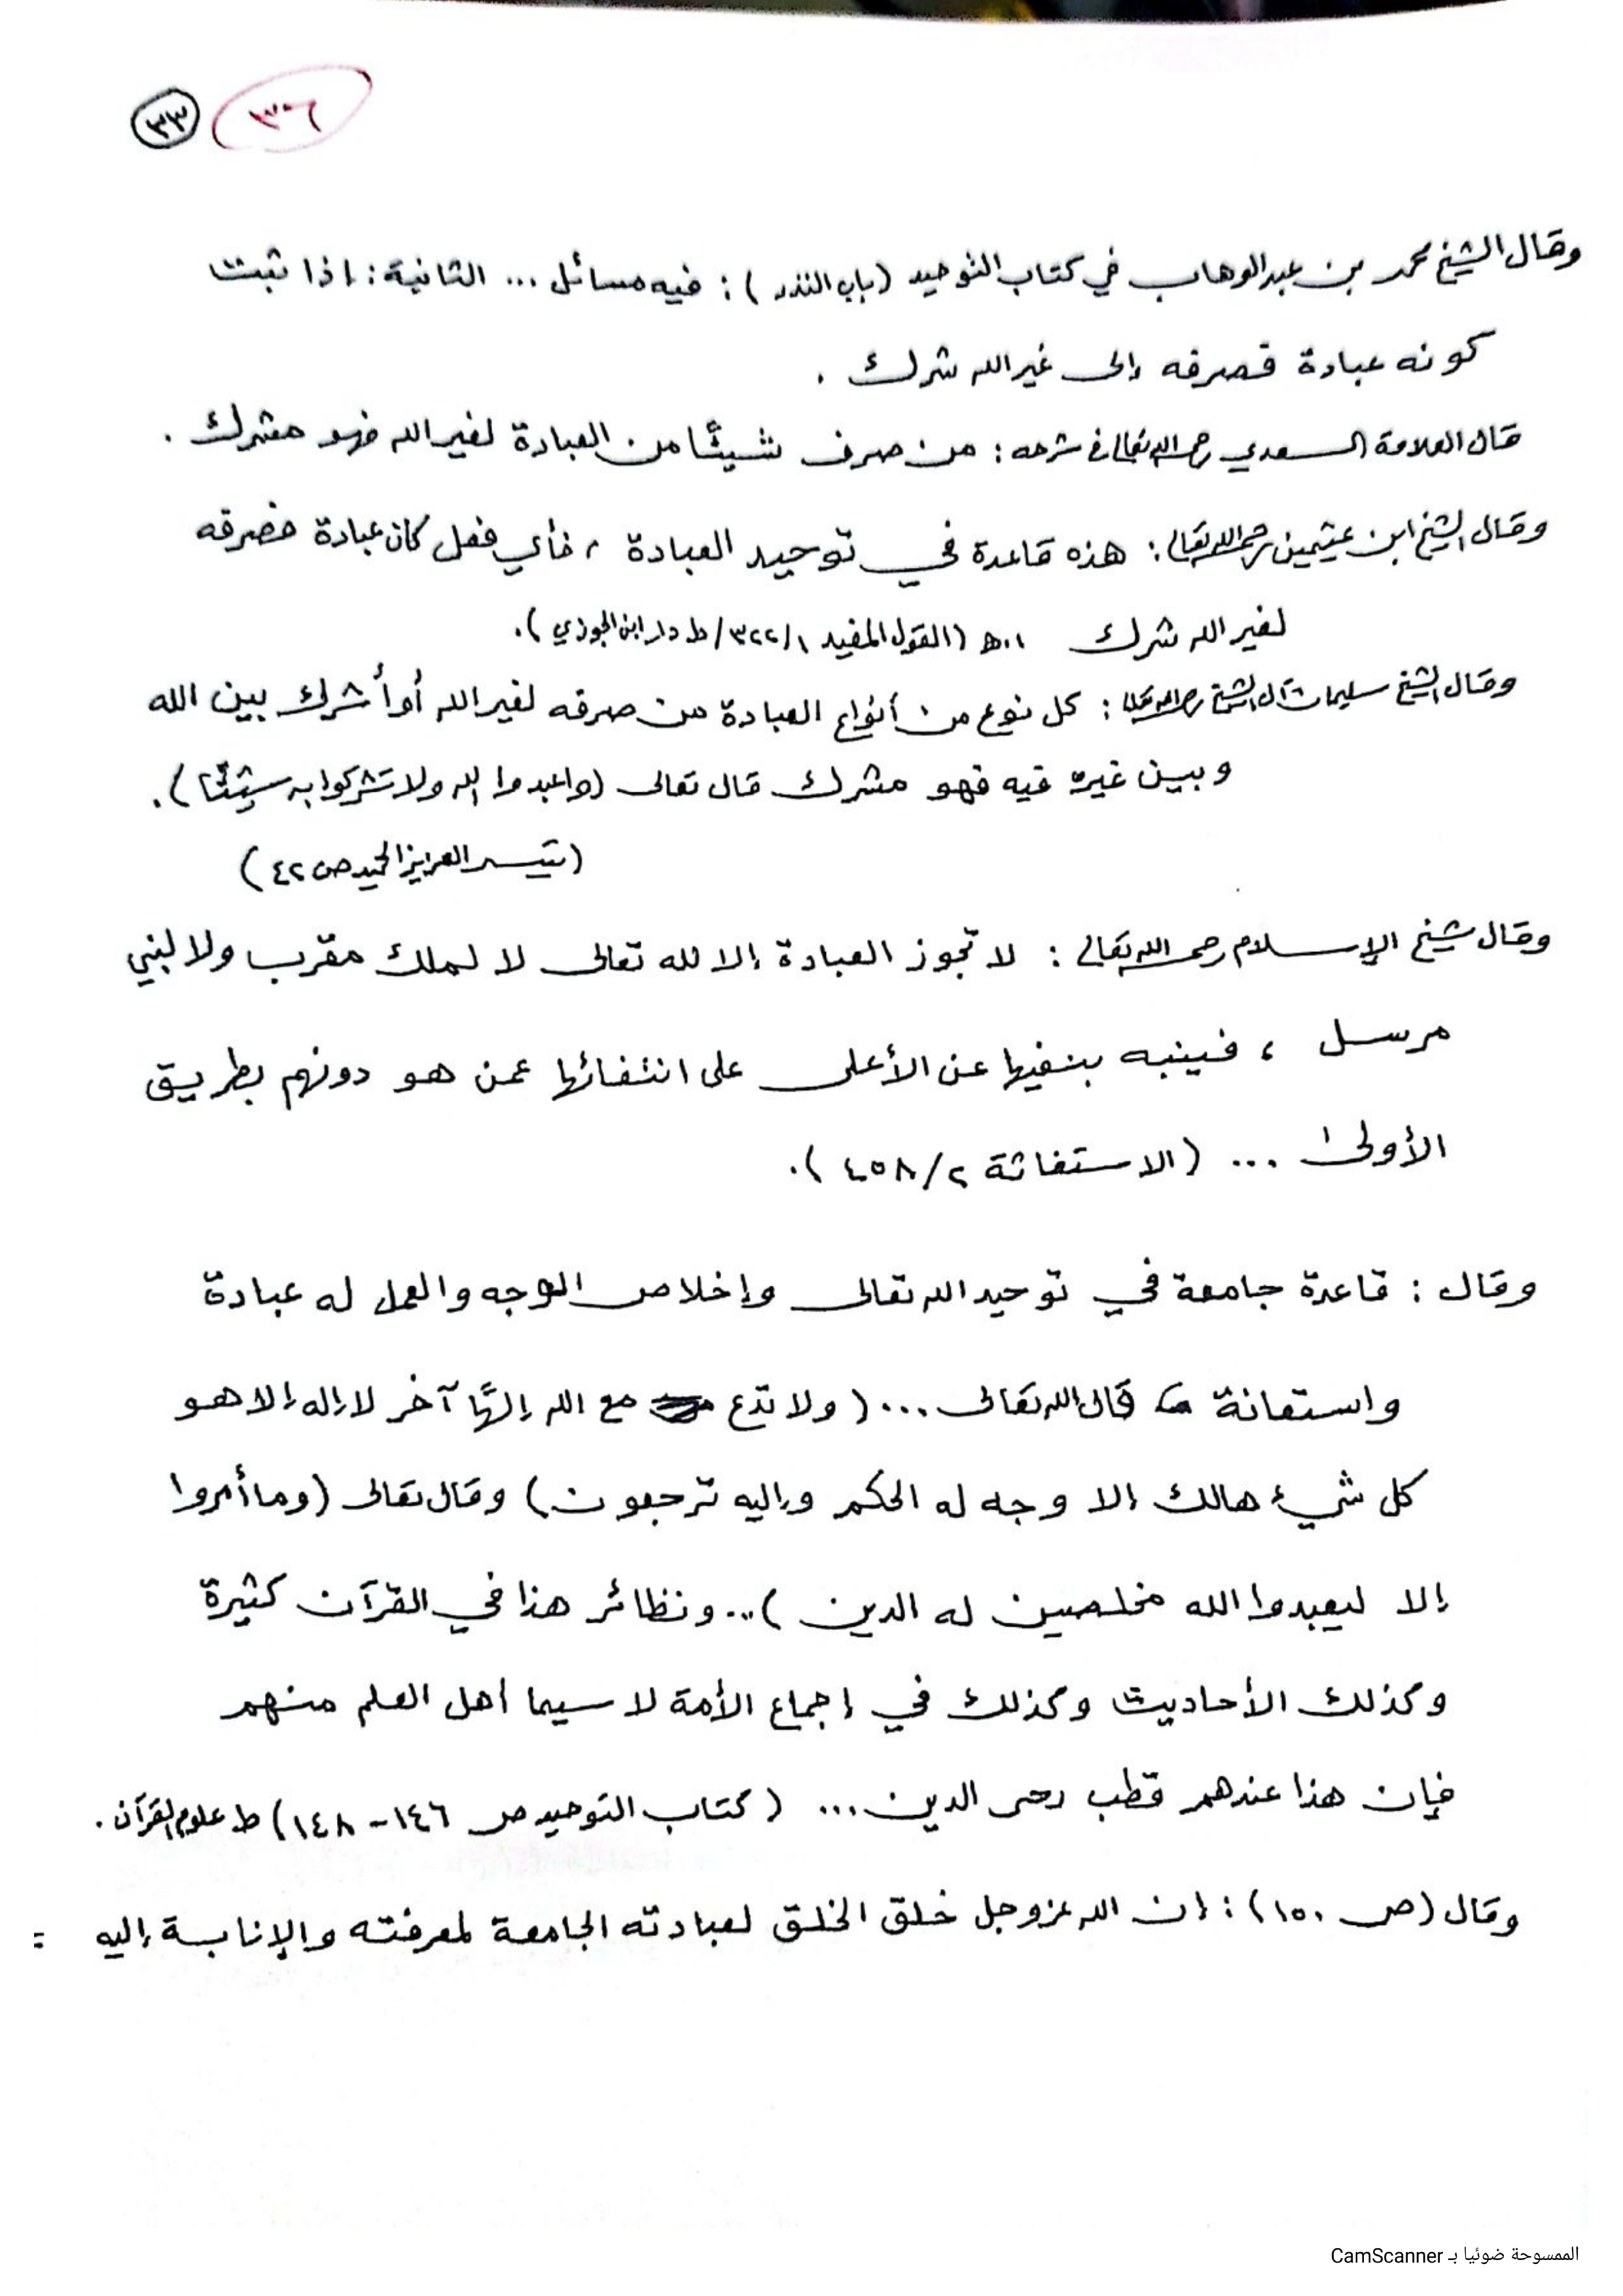 ٣٦ ٣٣
وقال الشيخ محمد بن عبدالوهاب في كتاب التوحيد (باب النذر) : فيه مسائل ... الثانية : إذا ثبت
كونه عبادة فصرفه إلى غير الله شرك .
قال العلامة السعدي رحمه الله تعالى في شرحه : من صرف شيئًا من العبادة لغير الله فهو مشرك .
وقال الشيخ ابن عثيمين رحمه الله تعالى : هذه قاعدة في توحيد العبادة ، فأي فعل كان عبادة فصرفه
لغير الله شرك ا.هـ (القول المفيد ٣٢٢/١/ط دار ابن الجوزي).
وقال الشيخ سليمان آل الشيخ رحمه الله تعالى : كل نوع من أنواع العبادة من صرفه لغير الله أو أشرك بين الله
وبين غيره فيه فهو مشرك قال تعالى (واعبدوا الله ولا تشركوا به شيئًا).
(تيسير العزيز الحميد ص ٤٢)
وقال شيخ الإسلام رحمه الله تعالى : لا تجوز العبادة إلا لله تعالى لا لملك مقرب ولا لنبي
مرسل ، فينبه بنفيها عن الأعلى على انتفائها عمن هو دونهم بطريق
الأولى ... (الاستغاثة ٤٥٨/٢).
وقال : قاعدة جامعة في توحيد الله تعالى وإخلاص الوجه والعمل له عبادة
واستعانة قال الله تعالى ... (ولا تدع مع الله إلهًا آخر لا إله إلا هو
كل شيء هالك إلا وجهه له الحكم وإليه ترجعون) وقال تعالى (وما أمروا
إلا ليعبدوا الله مخلصين له الدين )... ونظائر هذا في القرآن كثيرة
وكذلك الأحاديث وكذلك في إجماع الأمة لا سيما أهل العلم منهم
فإن هذا عندهم قطب رحى الدين ... (كتاب التوحيد ص ١٤٦-١٤٨) ط علوم القرآن .
وقال (ص ١٥٠) : إن الله عز وجل خلق الخلق لعبادته الجامعة لمعرفته والإنابة إليه =
الممسوحة ضوئيا بـ CamScanner